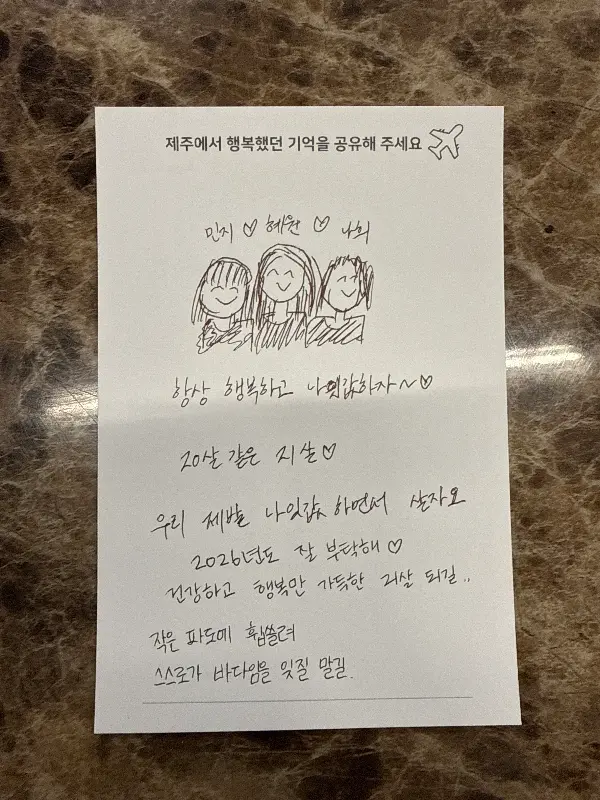 제주에서 행복했던 기억을 공유해 주세요
민지 ♡ 혜원 ♡ 나희
항상 행복하고 나잇값하자~♡
20살 같은 지살♡
우리 제발 나잇값 하면서 살자요
2026년도 잘 부탁해♡
건강하고 행복만 가득한 리살 되길..
작은 파도에 휩쓸려
스스로가 바다임을 잊질 말길.